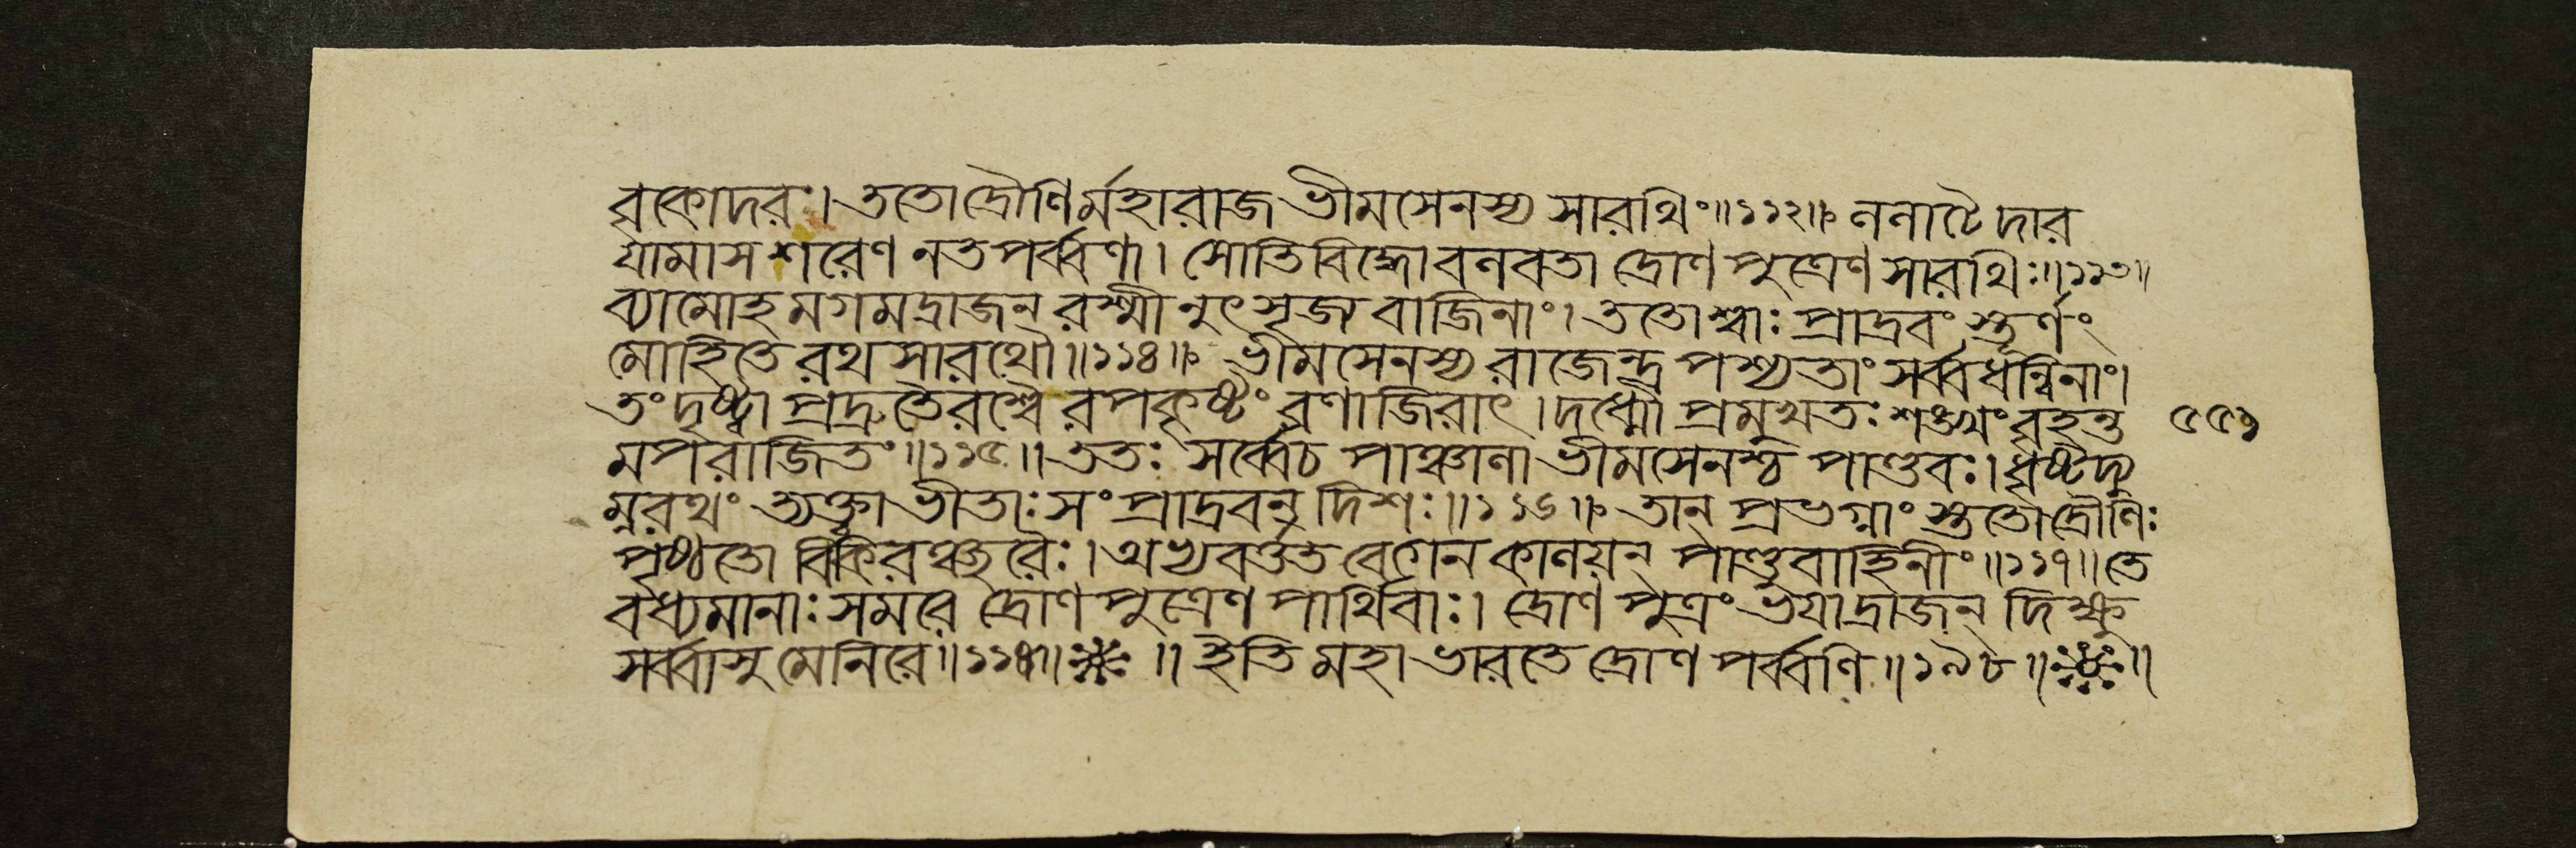 বৃকোদরঃ। ততোদ্রৌণির্মহারাজ ভীমসেনস্য সারথিং॥১১২॥ ললাটে দার
যামাস শরেণ নতপর্ব্বণা। সোতিবিদ্ধোবলবতা দ্রোণপুত্রেণ সারথিঃ॥১১৩॥
ব্যামোহমগমদ্রাজন্ রশ্মীনুৎসৃজ্য বাজিনাং। ততোশ্বাঃ প্রাদ্রবংস্তূর্ণং
মোহিতে রথসারথৌ॥১১৪॥ ভীমসেনস্য রাজেন্দ্র পশ্যতাং সর্ব্বধন্বিনাং।
তং দৃষ্ট্বা প্রদ্রুতৈরশ্বৈরপকৃষ্টং রণাজিরাৎ। দধ্মৌ প্রমুখতঃ শঙ্খং বৃহন্ত ৫৫১
মপরাজিতং॥১১৫॥ ততঃ সর্ব্বেচ পাঞ্চালা ভীমসেনশ্চ পাণ্ডবঃ। ধৃষ্টদ্যু
ম্নরথং ত্যক্ত্বা ভীতাঃ সংপ্রাদ্রবন্ দিশঃ॥১১৬॥ তান্ প্রভগ্নাংস্ততোদ্রৌণিঃ
পৃষ্ঠতো বিকিরঞ্ছরৈঃ। অভ্যবর্ত্তত বেগেন কালয়ন্ পাণ্ডুবাহিনীং॥১১৭॥ তে
বধ্যমানাঃ সমরে দ্রোণপুত্রেণ পার্থিবাঃ। দ্রোণপুত্রং ভযাদ্রাজন্ দিক্ষু
সর্ব্বাসু মেনিরে॥১১৮॥ ॥ ইতি মহাভারতে দ্রোণপর্ব্বণি॥১৯৮॥ ॥